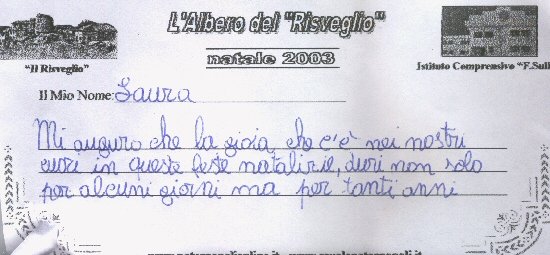 L'Albero del "Risveglio"
natale 2003
"Il Risveglio"
Istituto Comprensivo "F.Sull
Il Mio Nome: Laura
Mi auguro che la gioia, che c'è nei nostri
cuori in queste feste natalizie, duri non solo
per alcuni giorni ma per tanti anni